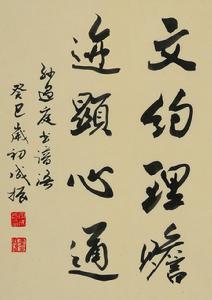 文约理赡
迹顯心通
孙过庭书谱语
癸巳歲初成振